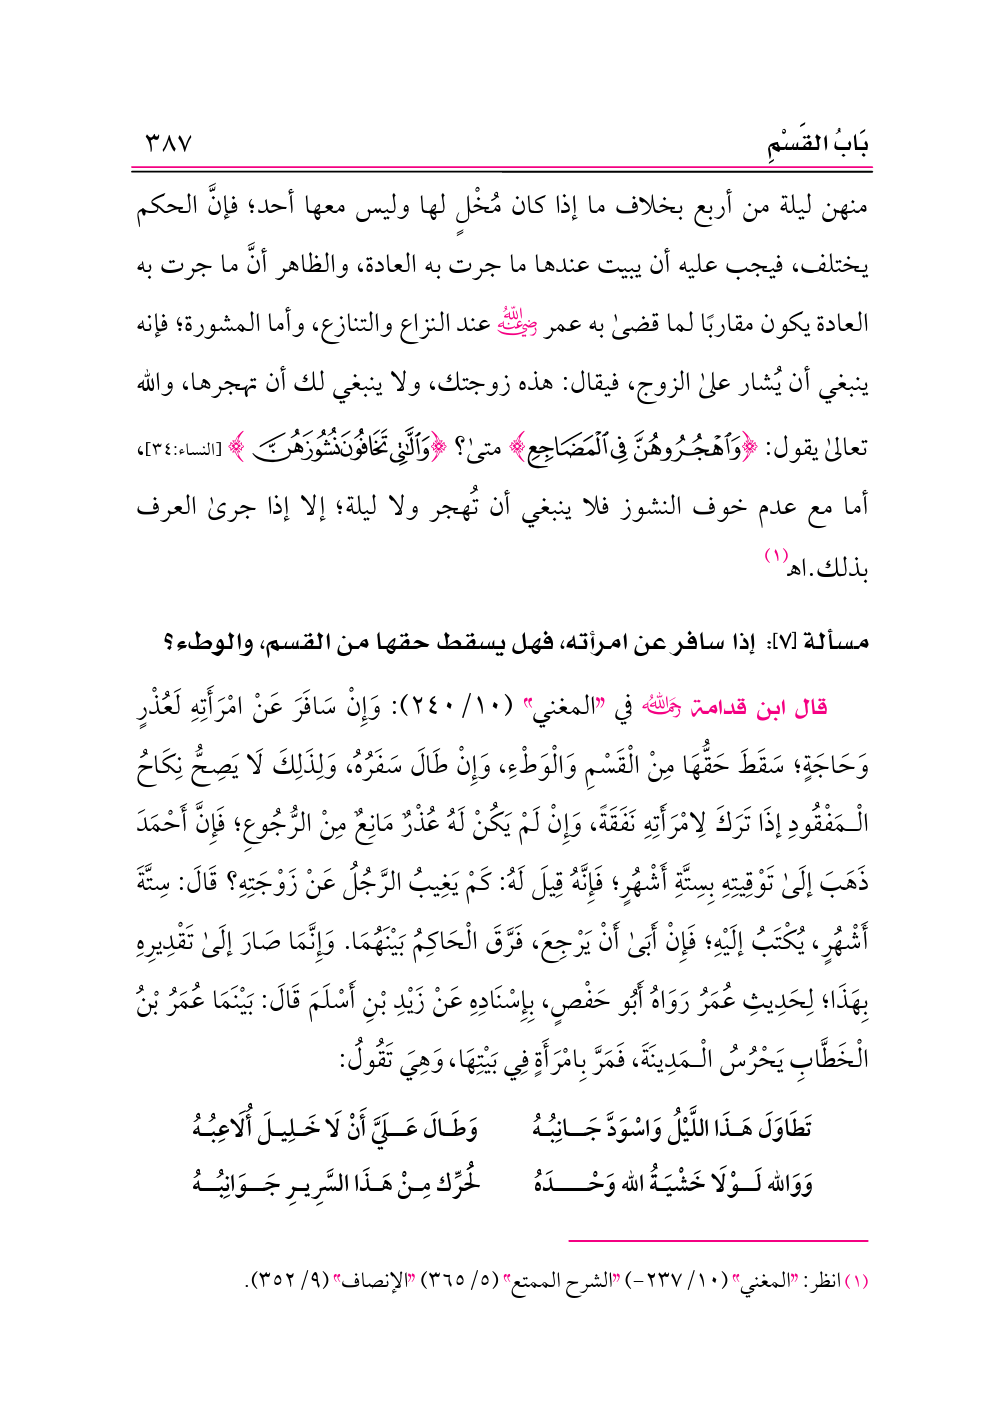 بَابُ القَسْمِ ٣٨٧
منهن ليلة من أربع بخلاف ما إذا كان مُخْلٍ لها وليس معها أحد؛ فإنَّ الحكم
يختلف، فيجب عليه أن يبيت عندها ما جرت به العادة، والظاهر أنَّ ما جرت به
العادة يكون مقاربًا لما قضىٰ به عمر رضي الله عنه عند النزاع والتنازع، وأما المشورة؛ فإنه
ينبغي أن يُشار علىٰ الزوج، فيقال: هذه زوجتك، ولا ينبغي لك أن تهجرها، والله
تعالىٰ يقول: ﴿وَٱهْجُرُوهُنَّ فِي ٱلْمَضَاجِعِ﴾ متىٰ؟ ﴿وَٱلَّٰتِي تَخَافُونَ نُشُوزَهُنَّ﴾ [النساء:٣٤]،
أما مع عدم خوف النشوز فلا ينبغي أن تُهجر ولا ليلة؛ إلا إذا جرىٰ العرف
بذلك.اهـ(١)
مسألة [٧]: إذا سافر عن امرأته، فهل يسقط حقها من القسم، والوطء؟
قال ابن قدامة رحمه الله في "المغني" (١٠/ ٢٤٠): وَإِنْ سَافَرَ عَنْ امْرَأَتِهِ لَعُذْرٍ
وَحَاجَةٍ؛ سَقَطَ حَقُّهَا مِنْ الْقَسْمِ وَالْوَطْءِ، وَإِنْ طَالَ سَفَرُهُ، وَلِذَلِكَ لَا يَصِحُّ نِكَاحُ
الْـمَفْقُودِ إذَا تَرَكَ لِامْرَأَتِهِ نَفَقَةً، وَإِنْ لَمْ يَكُنْ لَهُ عُذْرٌ مَانِعٌ مِنْ الرُّجُوعِ؛ فَإِنَّ أَحْمَدَ
ذَهَبَ إلَىٰ تَوْقِيتِهِ بِسِتَّةِ أَشْهُرٍ؛ فَإِنَّهُ قِيلَ لَهُ: كَمْ يَغِيبُ الرَّجُلُ عَنْ زَوْجَتِهِ؟ قَالَ: سِتَّةَ
أَشْهُرٍ، يُكْتَبُ إلَيْهِ؛ فَإِنْ أَبَىٰ أَنْ يَرْجِعَ، فَرَّقَ الْحَاكِمُ بَيْنَهُمَا. وَإِنَّمَا صَارَ إلَىٰ تَقْدِيرِهِ
بِهَذَا؛ لِحَدِيثِ عُمَرُ رَوَاهُ أَبُو حَفْصٍ، بِإِسْنَادِهِ عَنْ زَيْدِ بْنِ أَسْلَمَ قَالَ: بَيْنَمَا عُمَرُ بْنُ
الْخَطَّابِ يَحْرُسُ الْـمَدِينَةَ، فَمَرَّ بِامْرَأَةٍ فِي بَيْتِهَا، وَهِيَ تَقُولُ:
تَطَاوَلَ هَـذَا اللَّيْلُ وَاسْوَدَّ جَـــانِبُـهُ وَطَـالَ عَـــلَيَّ أَنْ لَا خَـلِيـلَ أُلَاعِبُـهُ
وَوَالله لَـــوْلَا خَشْيَـةُ الله وَحْـــــدَهُ لَحُرِّك مِـنْ هَـذَا السَّرِيـرِ جَـــوَانِبُـــهُ
(١) انظر: "المغني" (١٠/ ٢٣٧-) "الشرح الممتع" (٥/ ٣٦٥) "الإنصاف" (٩/ ٣٥٢).